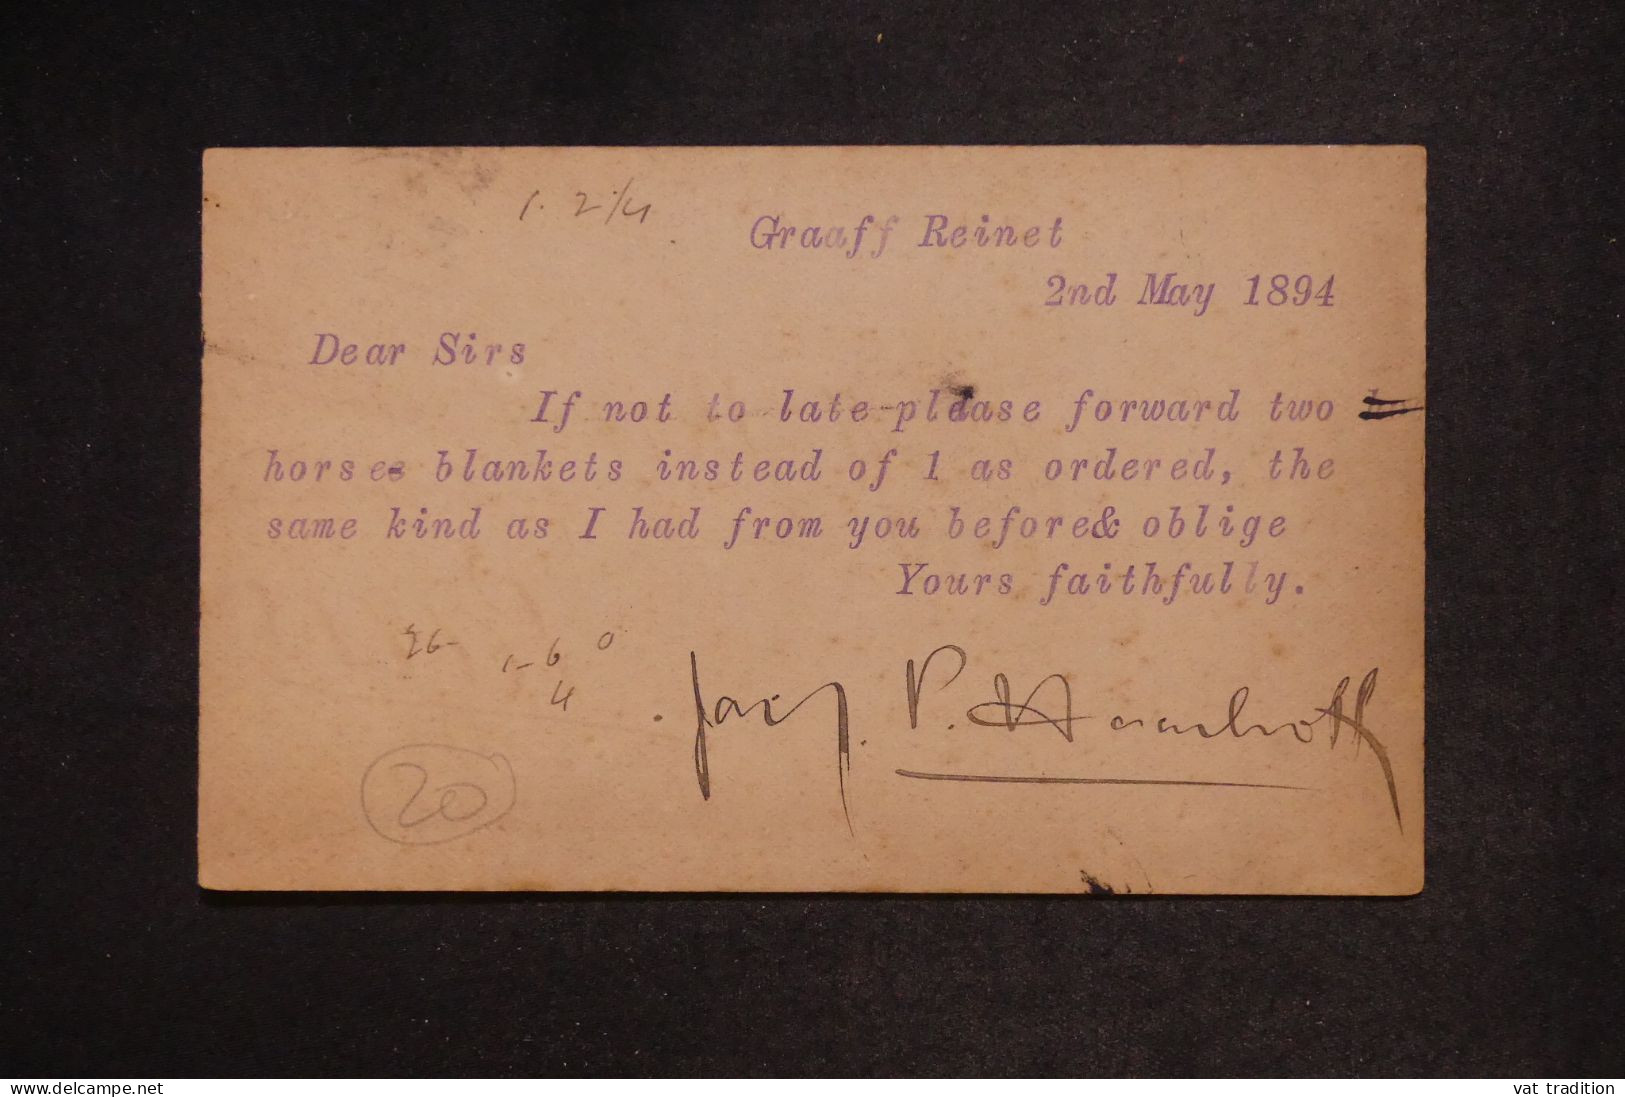 1. 2/4
Graaff Reinet
2nd May 1894
Dear Sirs
If not to late please forward two
horses blankets instead of 1 as ordered, the
same kind as I had from you before& oblige
Yours faithfully.
26-
1-6 0
4
20
delcampe.net
vat tradition